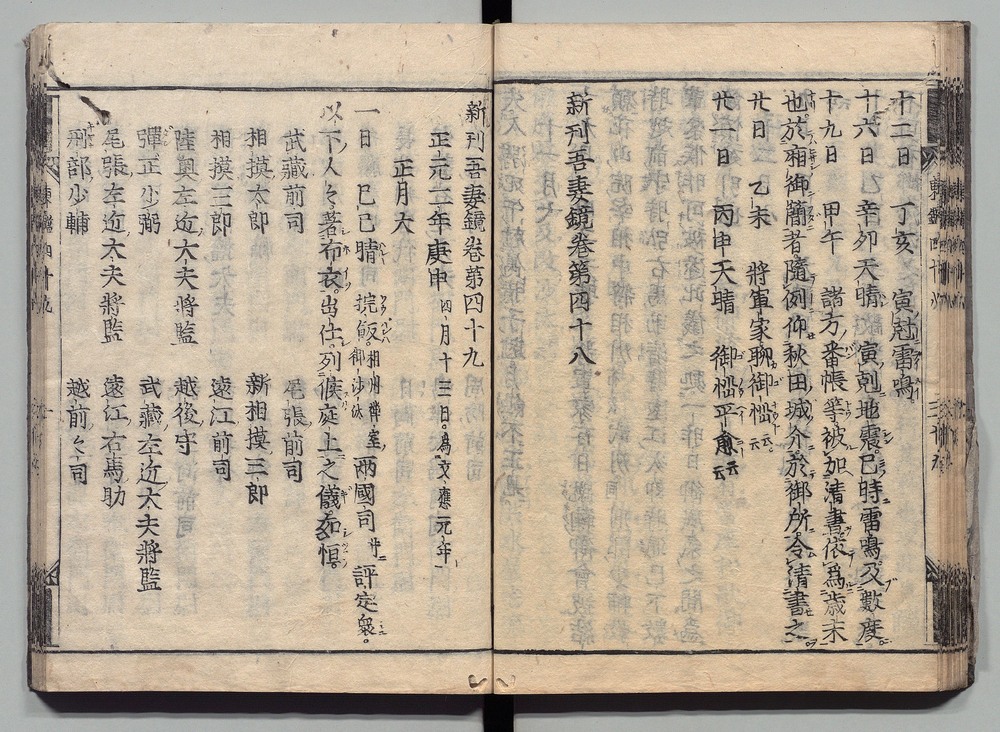 十二日 丁亥 寅尅雷鳴
十六日 乙辛卯天晴 寅剋地震 巳時雷鳴及數度
十九日 甲午 諸方番帳等被加清書 依爲歳末
也 於廂御簡者 隨例仰秋田城介 於御所令清書之
廿日 乙未 將軍家聊御惱云云
廿一日 丙申天晴 御惱平愈云云
新刊吾妻鏡卷第四十八
新刊吾妻鏡卷第四十九
正元二年庚申 四月十三日爲文應元年
正月大
一日 己巳晴 埦飯 相州禪室御沙汰 兩國司并評定衆
以下人々著布衣出仕 列候庭上之儀如恒
武藏前司 尾張前司
相摸太郎 新相摸三郎
相摸三郎 遠江前司
陸奧左近大夫將監 越後守
彈正少弼 武藏左近大夫將監
尾張左近大夫將監 遠江右馬助
刑部少輔 越前々司